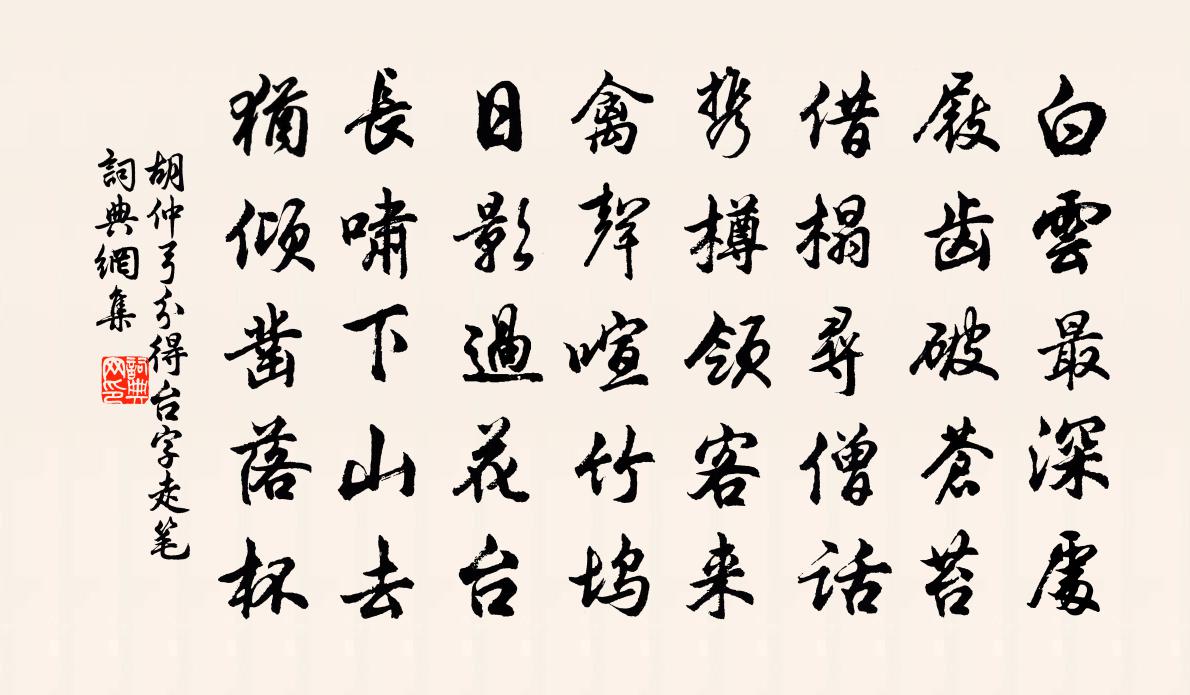 白雲最深處
屐齒破蒼苔
借榻尋僧話
携樽領客来
禽聲喧竹塢
日影過花台
長嘯下山去
猶傾鑿落杯
胡仲弓分得台字走笔
詞典網集
詞典网印